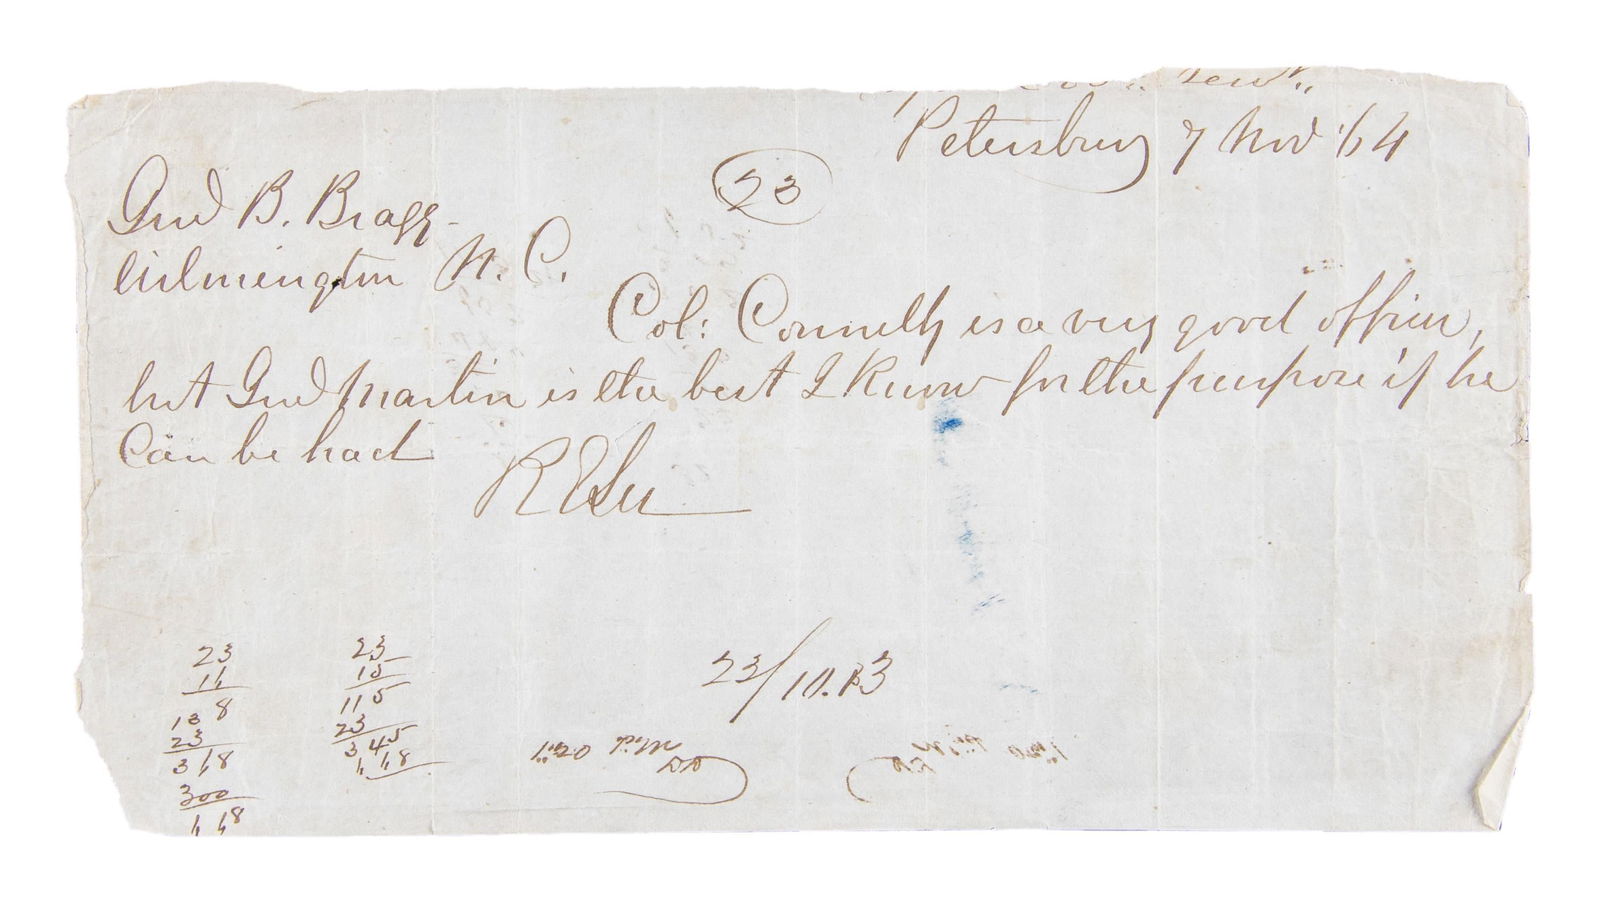 Petersburg 7 Nov '64
23
Genl B. Bragg
Wilmington N. C.
Col: Connelly is a very good officer,
but Genl Martin is the best I know for the purpose if he
can be had
R E Lee
23 23
15
8 115
138 23
23 345
368
300
68
23/10.
1:20 P.M.